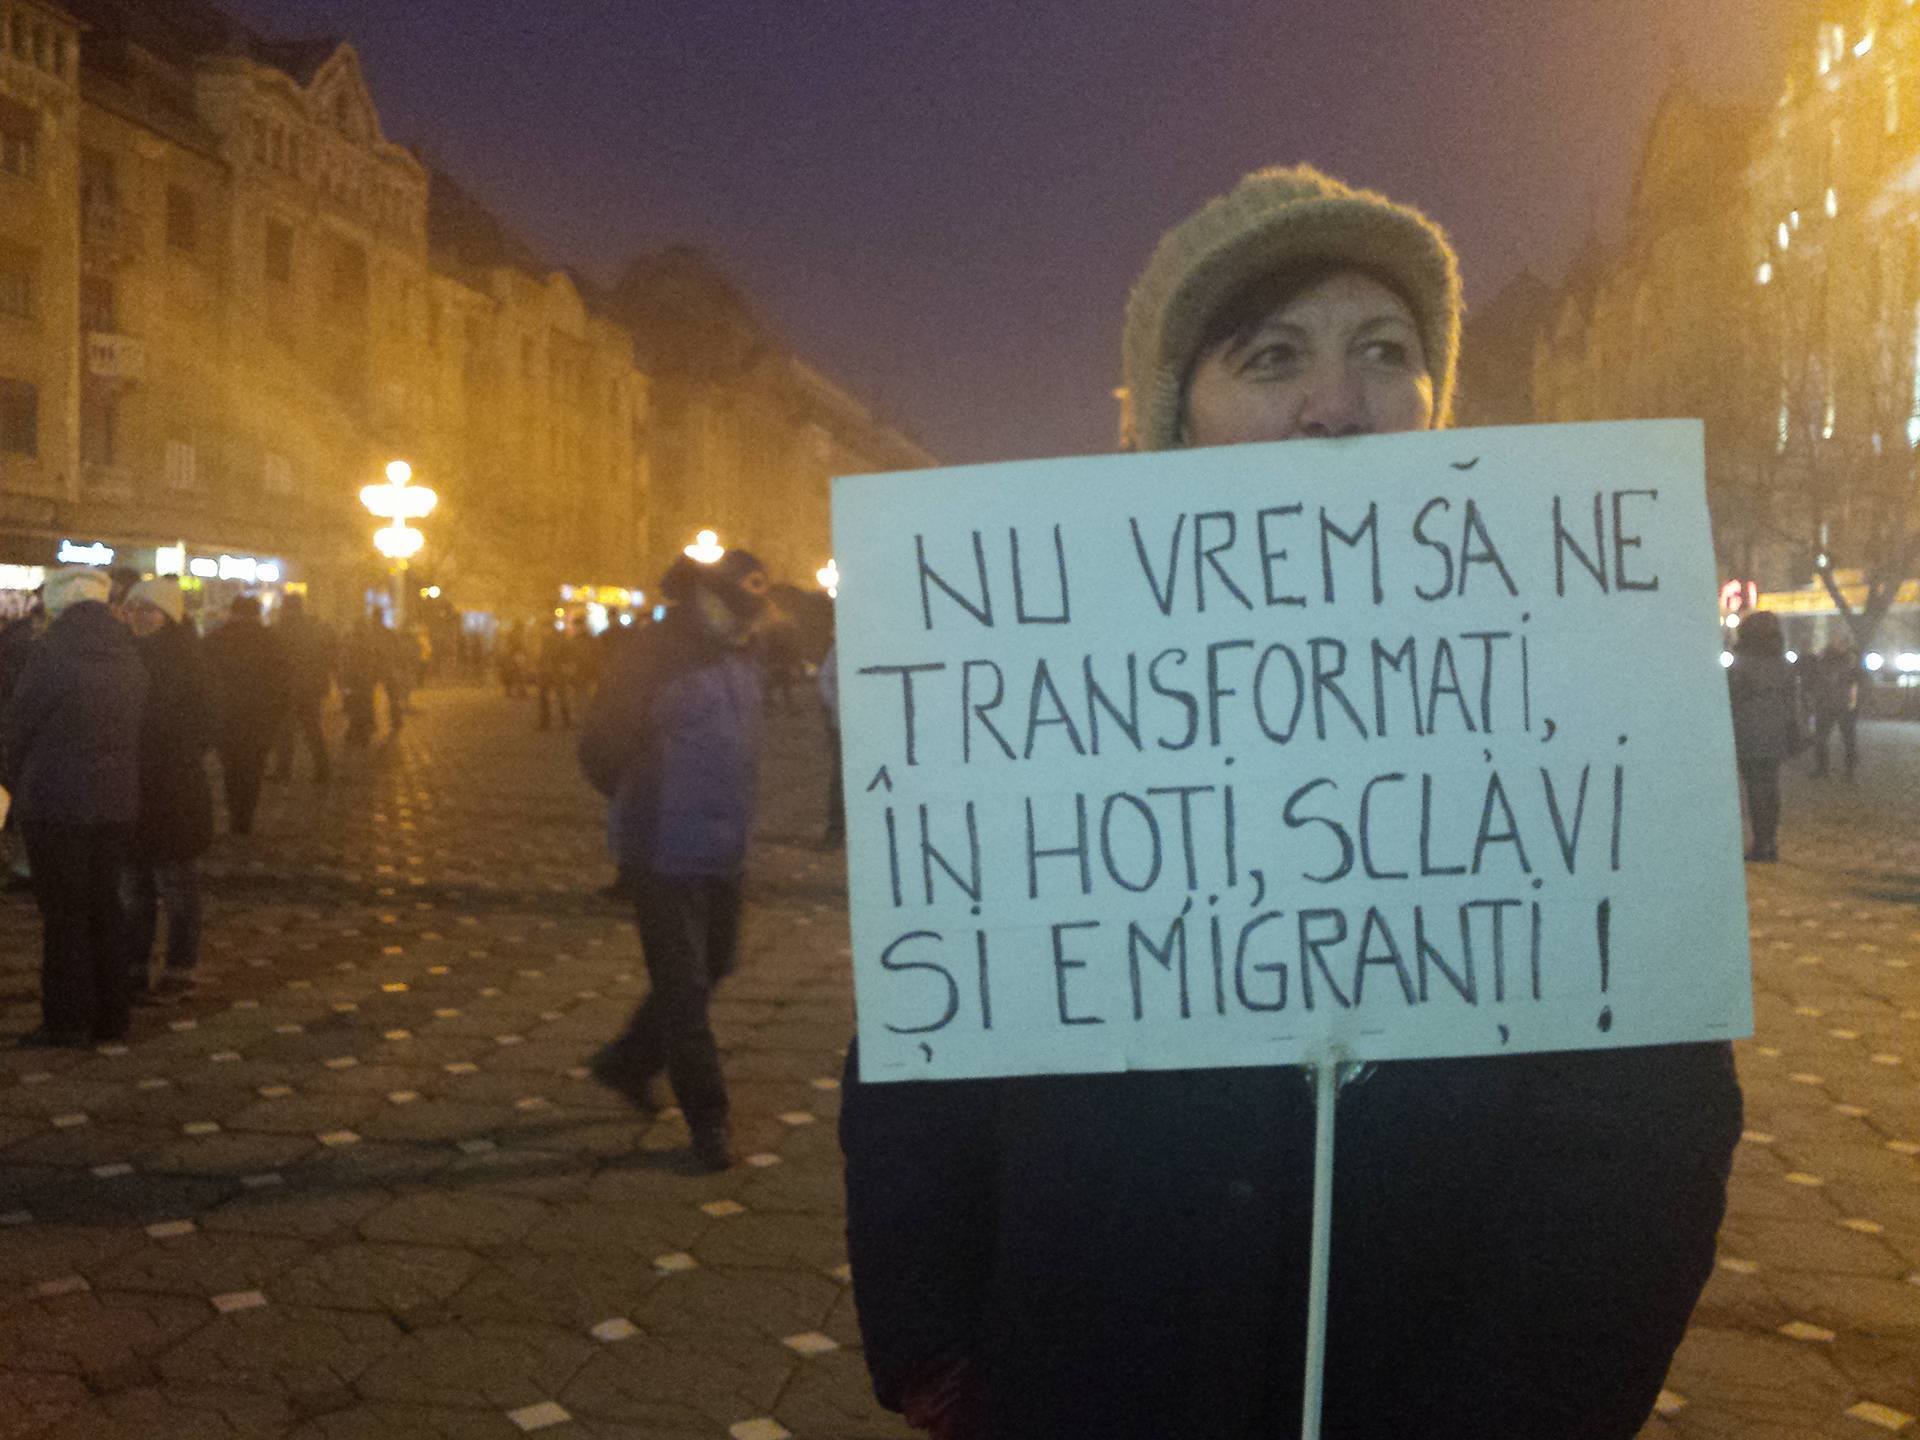 NU VREM SĂ NE
TRANSFORMAȚI,
ÎN HOȚI, SCLAVI
ȘI EMIGRANȚI!